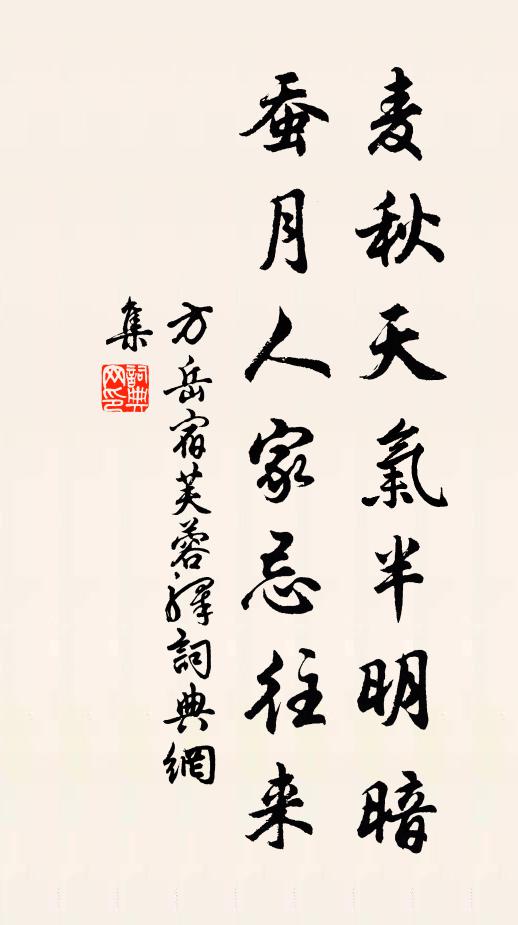 麦秋天氣半明暗
蚕月人家忌往来
方岳宿芙蓉驛詞典網
集
詞典網印